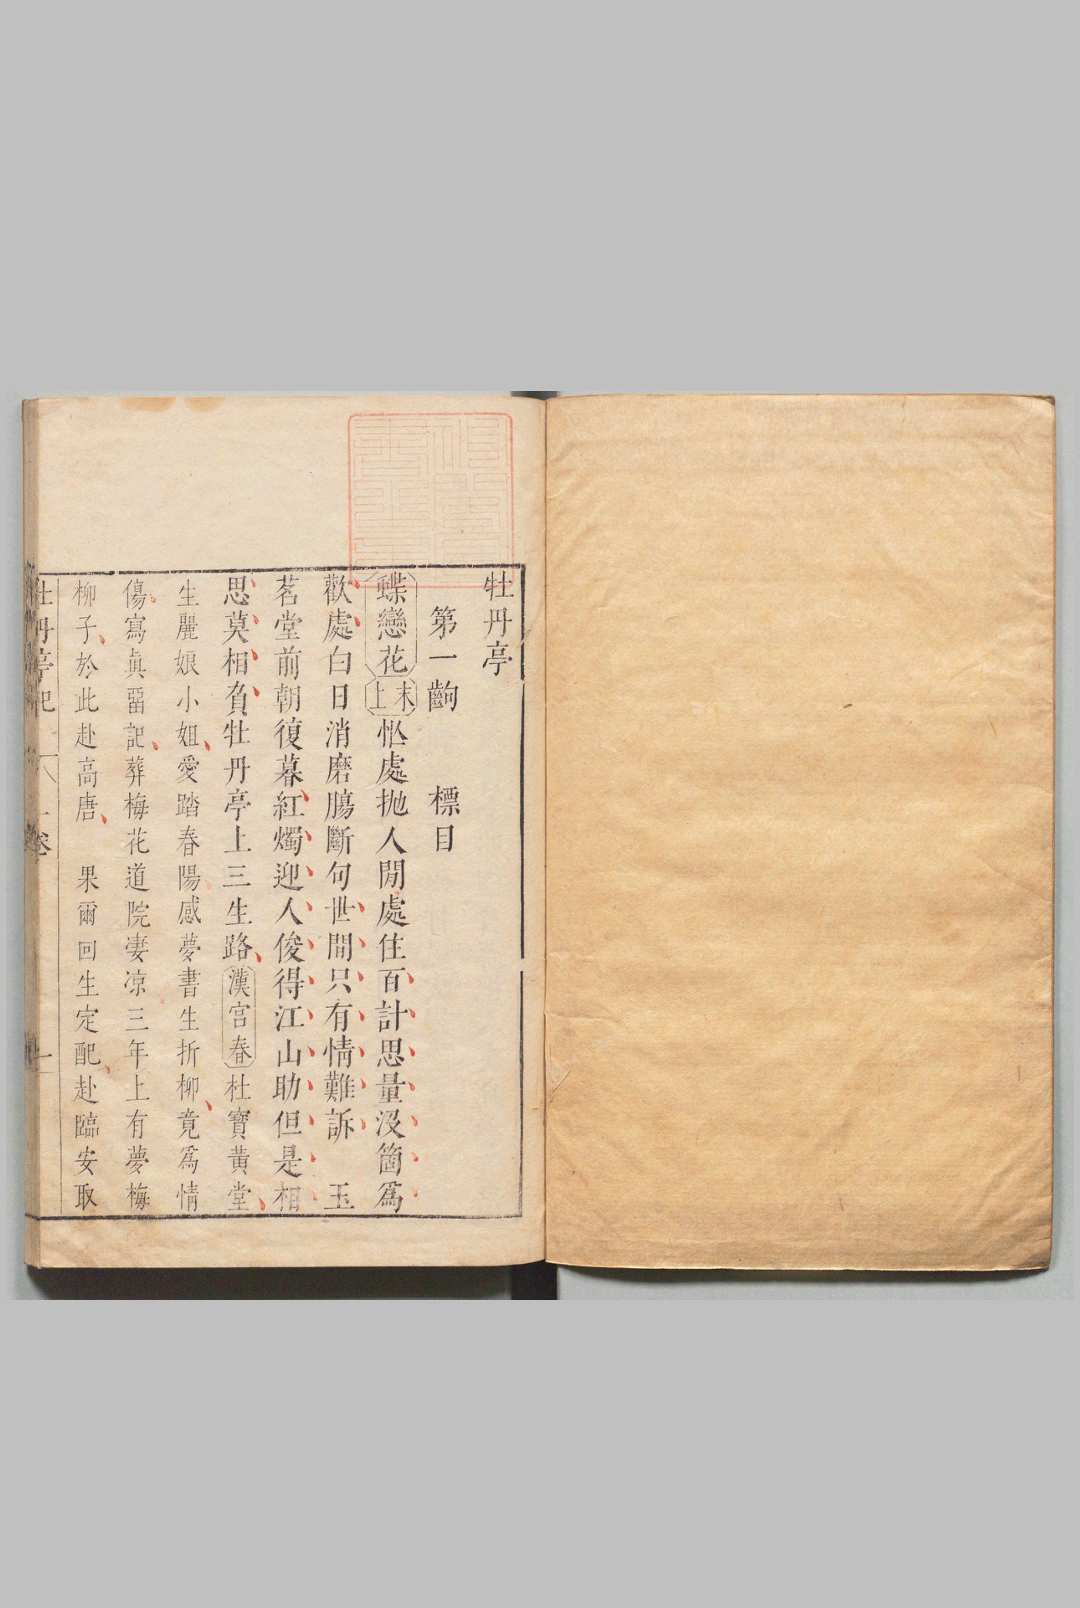 牡丹亭
第一齣 標目
蝶戀花 末上 忙處拋人閒處住百計思量沒箇爲
歡處白日消磨腸斷句世間只有情難訴 玉
茗堂前朝復暮紅燭迎人俊得江山助但是相
思莫相負牡丹亭上三生路 漢宮春 杜寶黃堂
生麗娘小姐愛踏春陽感夢書生折柳竟爲情
傷寫眞畱記葬梅花道院淒凉三年上有夢梅
柳子於此赴高唐 果爾回生定配赴臨安取
牡丹亭記 卷一 一